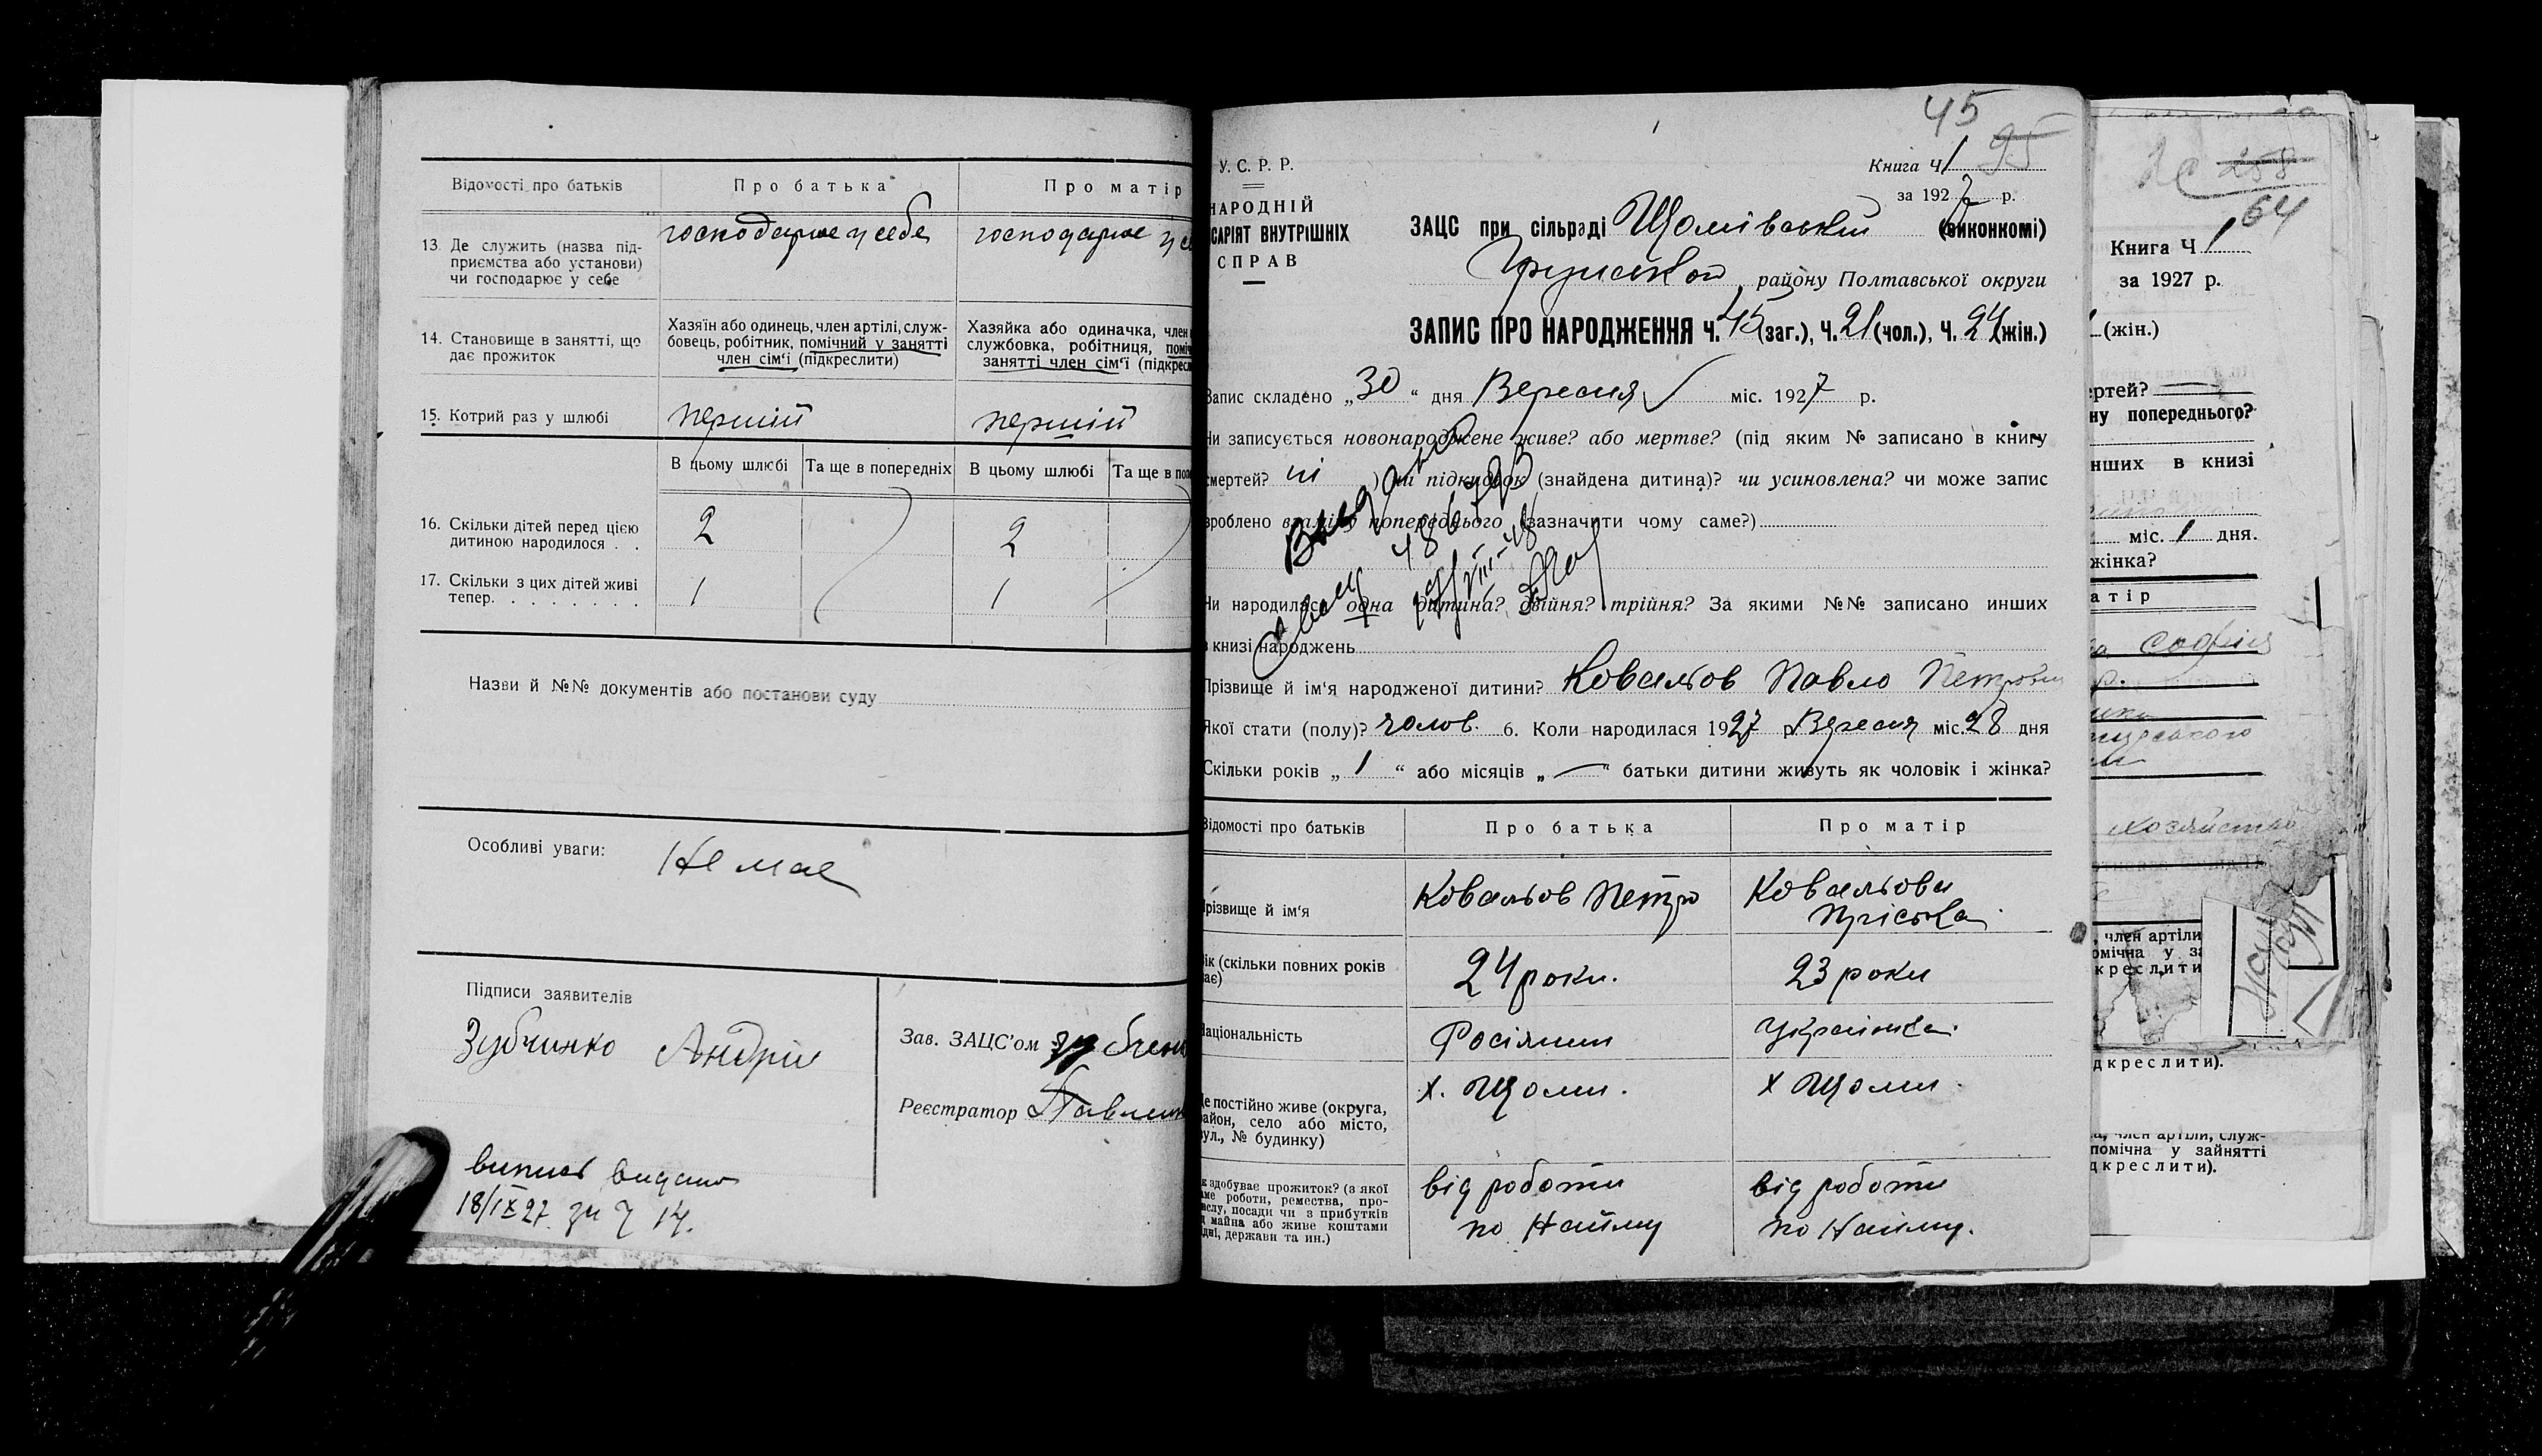 Відомості про батьків
Про батька
Про матір
13. Де служить (назва під-
приємства або установи)
чи господарює у себе
господарює у себе
господарює у се
14. Становище в занятті, що
дає прожиток
Хазяїн або одинець, член артілі, служ-
бовець, робітник, помічний у занятті
член сім'ї (підкреслити)
Хазяйка або одиначка, член
службовка, робітниця, поміч
занятті член сім'ї (підкресл
15. Котрий раз у шлюбі
перший
перший
В цьому шлюбі
Та ще в попередніх
В цьому шлюбі
Та ще в поп
16. Скільки дітей перед цією
дитиною народилося . .
2
2
17. Скільки з цих дітей живі
тепер. . . . . . . .
1
1
Назви й №№ документів або постанови суду
Особливі уваги:
Немає
Підписи заявителів
Зубчинко Андрій
Зав. ЗАЦС'ом
Реєстратор
випись видана
18/IX 27 за Ч 14.
45
95
У. С. Р. Р.
Книга Ч 1
за 1927 р.
НАРОДНІЙ
САРІЯТ ВНУТРІШНІХ
СПРАВ
ЗАЦС при сільраді Щомівській (виконкомі)
району Полтавської округи
ЗАПИС ПРО НАРОДЖЕННЯ Ч. 45 (заг.), Ч. 21 (чол.), Ч. 24 (жін.)
Запис складено „30“ дня Вересня міс. 1927 р.
Чи записується новонароджене живе? або мертве? (під яким № записано в книгу
смертей? ні ) чи підкидьок (знайдена дитина)? чи усиновлена? чи може запис
зроблено взамін попереднього (зазначити чому саме?)
Чи народилася одна дитина? двійня? трійня? За якими №№ записано инших
в книзі народжень
Прізвище й ім'я народженої дитини? Ковальов Павло Петрович
Якої стати (полу)? чолов. 6. Коли народилася 1927 р. Вересня міс. 28 дня
Скільки років „1“ або місяців „—“ батьки дитини живуть як чоловік і жінка?
Відомості про батьків
Про батька
Про матір
Прізвище й ім'я
Ковальов Петро
Ковальова
Пріська
Вік (скільки повних років
має)
24 роки.
23 роки
Національність
Росіянин
Українка
Де постійно живе (округа,
район, село або місто,
вул., № будинку)
х. Щоми.
х Щоми.
здобуває прожиток? (з якої
саме роботи, ремества, про-
мислу, посади чи з прибутків
майна або живе коштами
рідні, держави та ин.)
від роботи
по Найму
від роботи
по Найму.
258
64
Книга Ч 1
за 1927 р.
(жін.)
ертей?
ну попереднього?
нших в книзі
міс. 1 дня.
жінка?
атір
Софія
хозяйство
, член артіли
помічна у за
креслити
дкреслити).
а, член артіли, служ-
помічна у зайнятті
дкреслити).